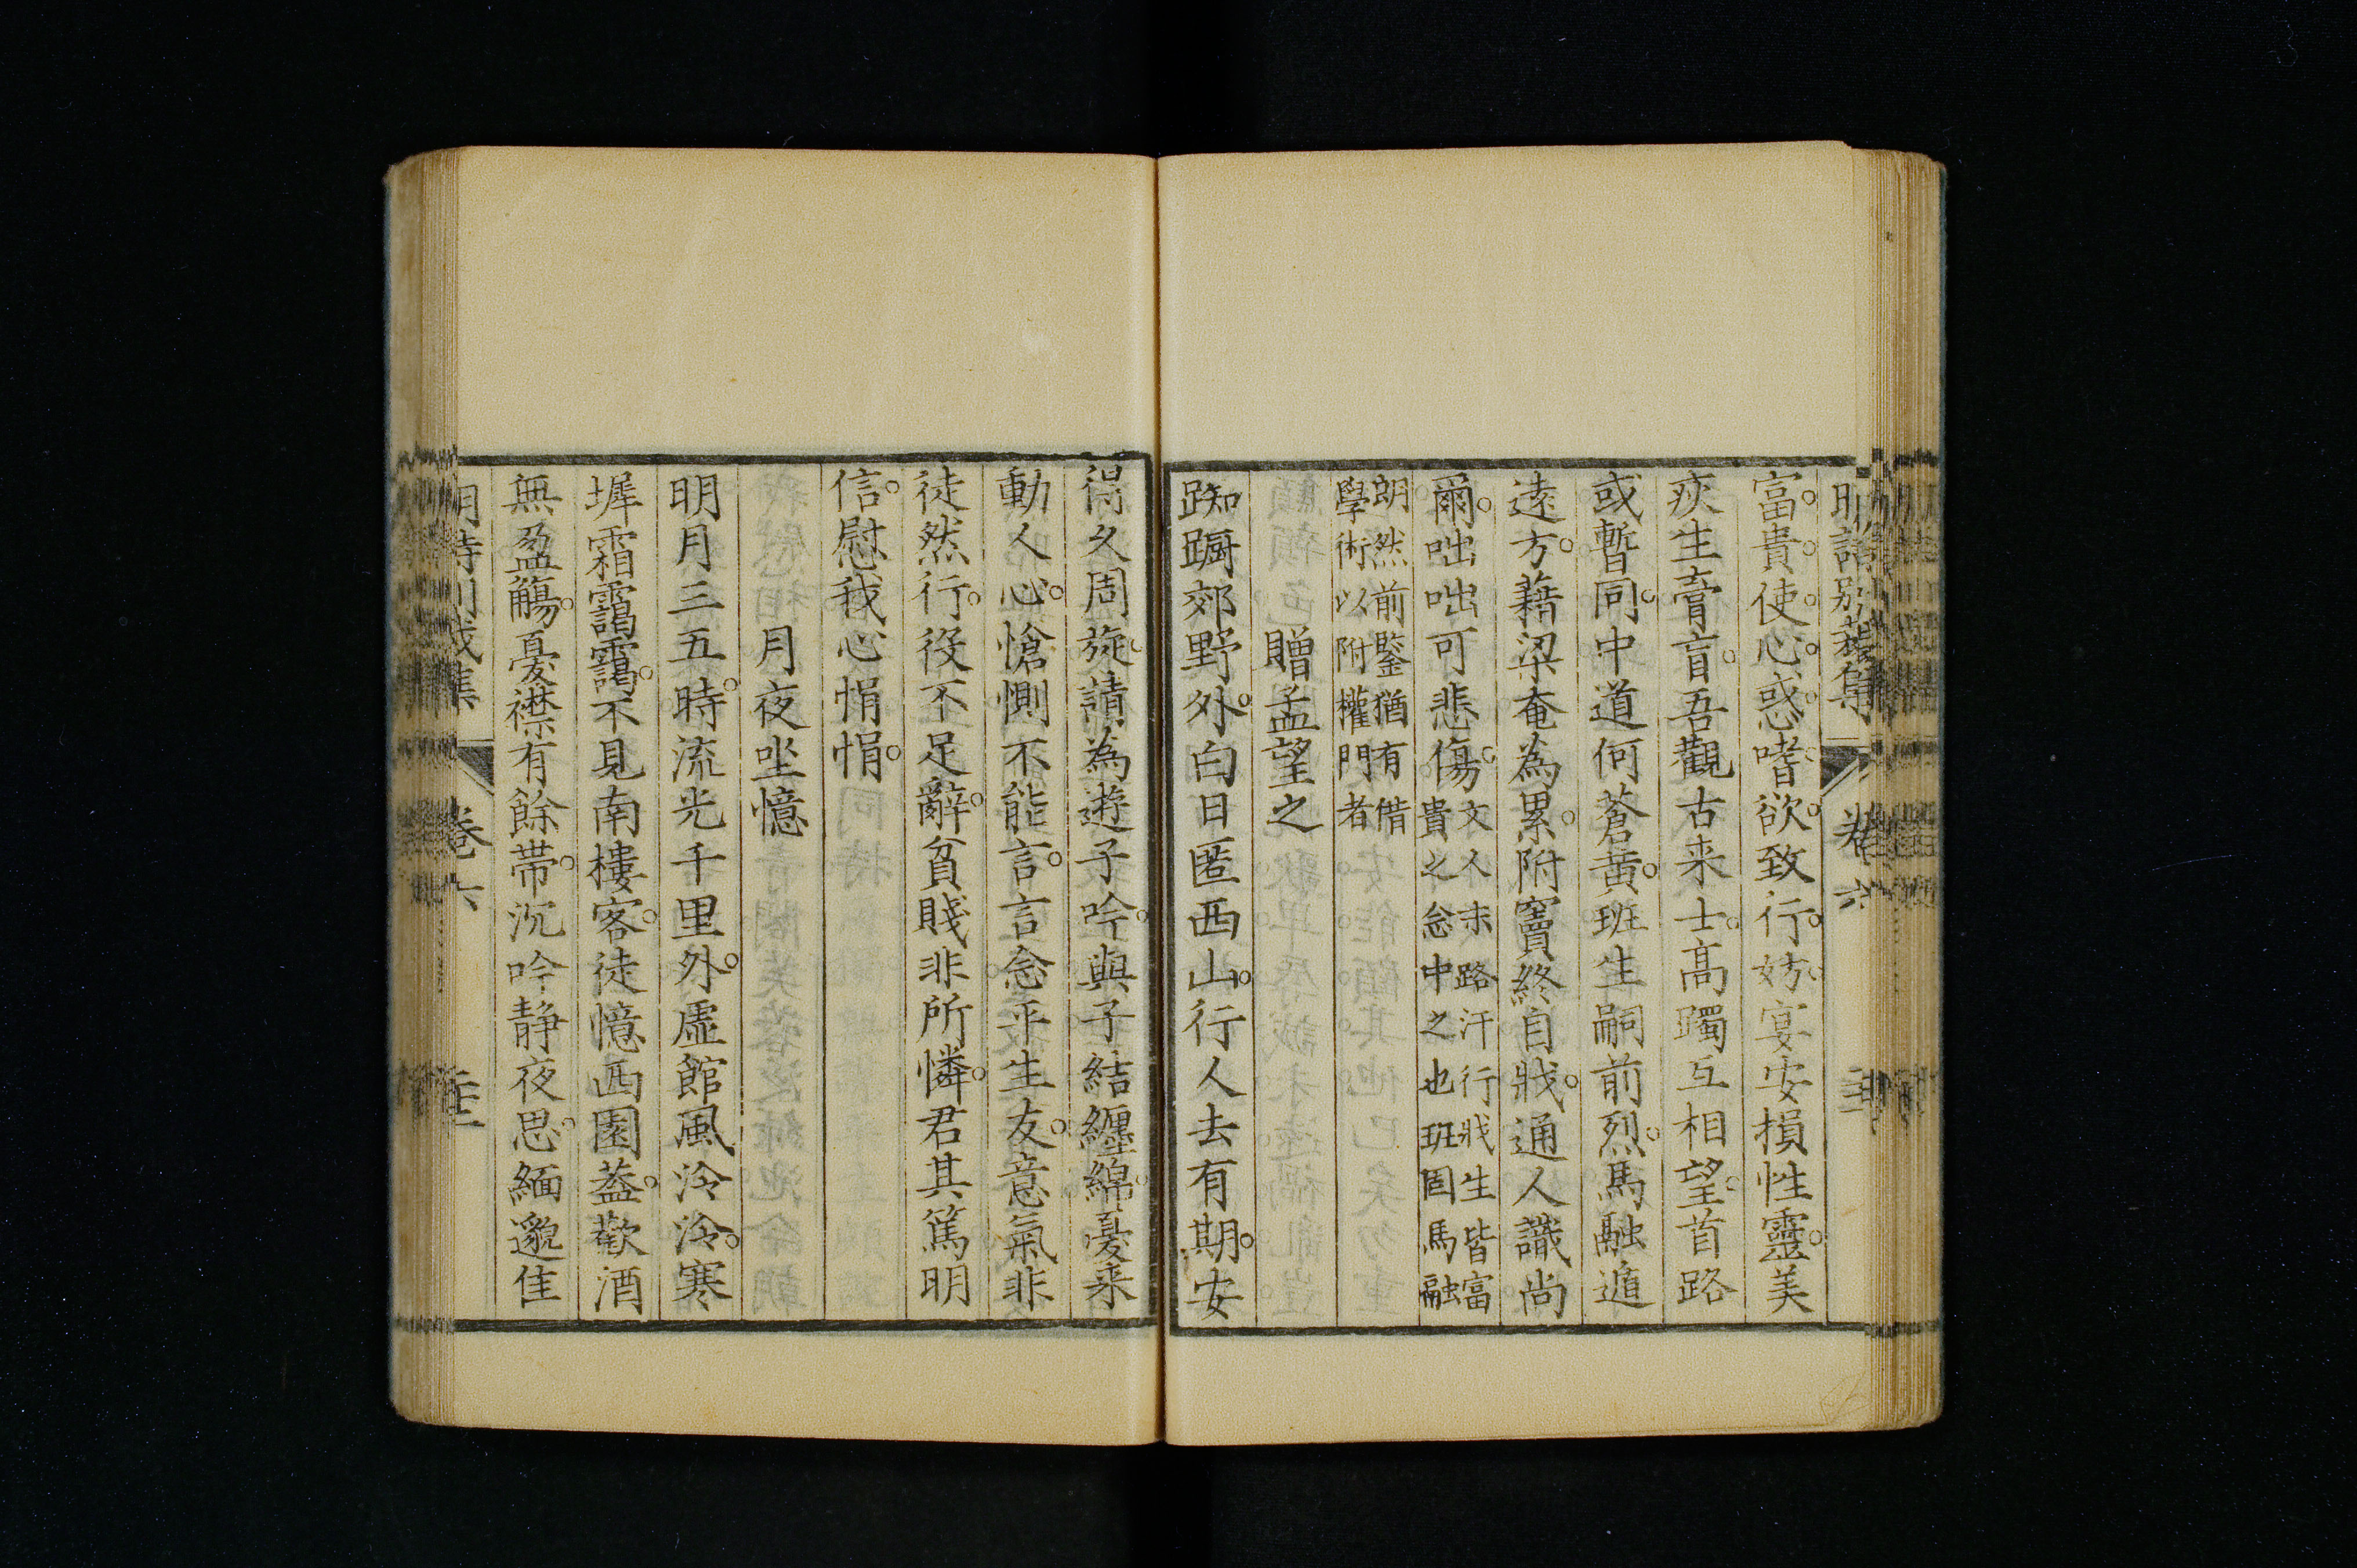 明詩別裁集 卷六
富貴使心惑嗜欲致行妨宴安損性靈美
疢生膏肓吾觀古来士高躅互相望首路
或暫同中道何蒼黃班生嗣前烈馬融遁
遠方藉梁奄為累附竇終自戕通人識尚
爾咄咄可悲傷文人末路汙行戕生皆富貴之念中之也班固馬融
朗然前鑒猶有借學術以附權門者
贈孟望之
踟蹰郊野外白日匿西山行人去有期安
得久周旋請為遊子吟與子結纏綿憂来
動人心愴惻不能言言念平生友意氣非
徒然行役不足辭貧賤非所憐君其篤明
信慰我心悁悁
月夜坐憶
明月三五時流光千里外虛館風泠泠寒
墀霜靄靄不見南樓客徒憶西園葢歡酒
無盈觴憂襟有餘帶沉吟靜夜思緬邈佳
明詩別裁集 卷六